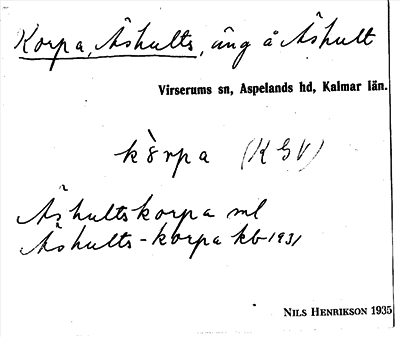 Korpa, Åshults, äng å Åshult
Virserums sn, Aspelands hd, Kalmar län.
kòrpa (KGV)
Åshultskorpa ml
Åshults-korpa kb 1931
NILS HENRIKSON 1935